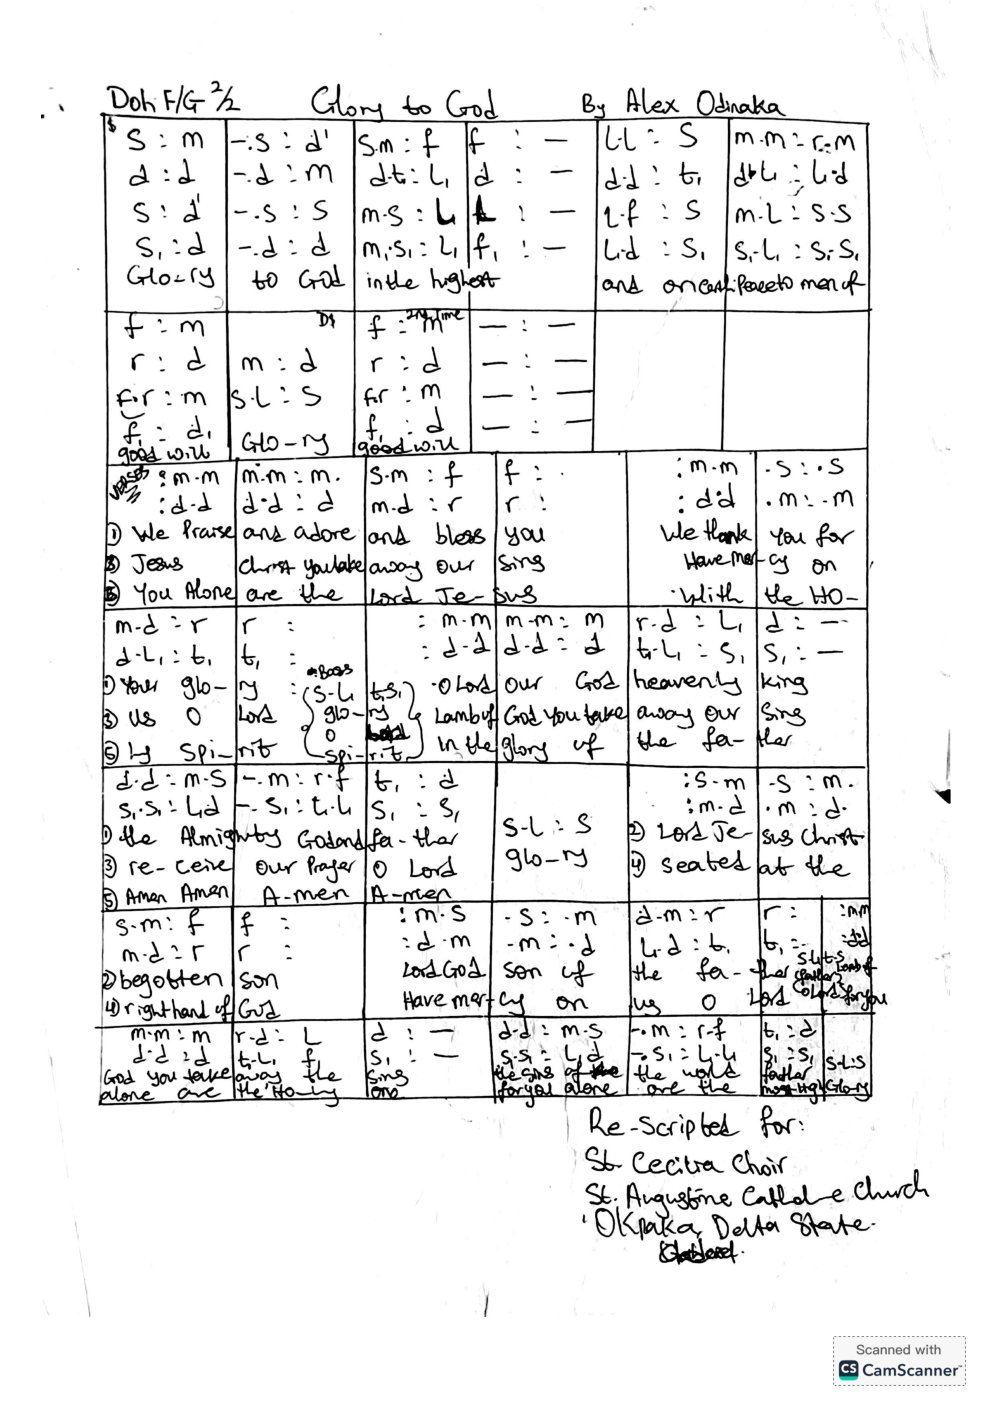 Doh F/G 2/2 Glory to God By Alex Odinaka
S : m | -.s : d' | s.m : f | f : — | l.l : s | m.m : r.m
d : d | -.d : m | d.t₁ : l₁ | d : — | d.d : t₁ | d.l₁ : l₁.d
s : d' | -.s : s | m.s : l | l : — | l.f : s | m.l : s.s
s₁ : d | -.d : d | m₁.s₁ : l₁ | f₁ : — | l₁.d : s₁ | s₁.l₁ : s₁.s₁
Glo-ry | to God | in the highest | and on earth | Peace to men of
f : m | D$ | f : m 2nd Time | — : —
r : d | m : d | r : d | — : —
f.r : m | s.l : s | f.r : m | — : —
f₁ : d₁ | f₁ : d | — : —
good will | Glo-ry | good will
VERSES : m.m | m.m : m. | s.m : f | f : . | : m.m | .s : .s
: d.d | d.d : d | m.d : r | r : | : d.d | .m : .m
① We Praise | and adore | and bless | you | We thank | you for
③ Jesus | Christ you take | away our | Sins | Have mer-cy on
⑤ You Alone | are the | Lord Je-sus | With | the HO-
m.d : r | r : | : m.m | m.m : m | r.d : l₁ | d : —
d.l₁ : t₁ | t₁ : | : d.d | d.d : d | t₁.l₁ : s₁ | s₁ : —
Bass
① Your glo-ry : (s.l₁ | t₁.s₁) | O Lord | our God | heavenly | king
③ us O | Lord | glo-ry | Lamb of | God you take | away our | Sins
O Lord
⑤ ly Spi-rit | spi-rit | in the | glory of | the fa-ther
d.d : m.s | -.m : r.f | t₁ : d | : s.m | .s : m.
s₁.s₁ : l₁.d | -.s₁ : l₁.l₁ | s₁ : s₁ | : m.d | .m : d.
① the Almighty God and fa-ther | s.l : s | ② Lord Je-sus Christ
③ re-ceive | our Prayer | O Lord | glo-ry | ④ seated | at the
⑤ Amen Amen | A-men | A-men
s.m : f | f : | : m.s | .s : .m | d.m : r | r : | : m.m
m.d : r | r : | : d.m | .m : .d | l₁.d : t₁ | t₁ : | : d.d
② begotten | son | Lord God | son of | the fa-ther | s.l₁ t.s (father) | Lamb of
④ right hand of God | Have mer-cy on | us O | Lord | O Lord | for you
m.m : m | r.d : l | d : — | d.d : m.s | -.m : r.f | t₁ : d
d.d : d | t₁.l₁ f₁ | s₁ : — | s₁.s₁ : l₁.d | -.s₁ : l₁.l₁ | s₁ : s₁ | s.l : s
God you take | away the | Sins | the sins of | the world | father | Glo-ry
alone are | the Ho-ly | one | for you alone | are the | most High
Re-Scripted for:
St. Cecilia Choir
St. Augustine Catholic Church
Okpaka, Delta State.
Scanned with
CS CamScanner